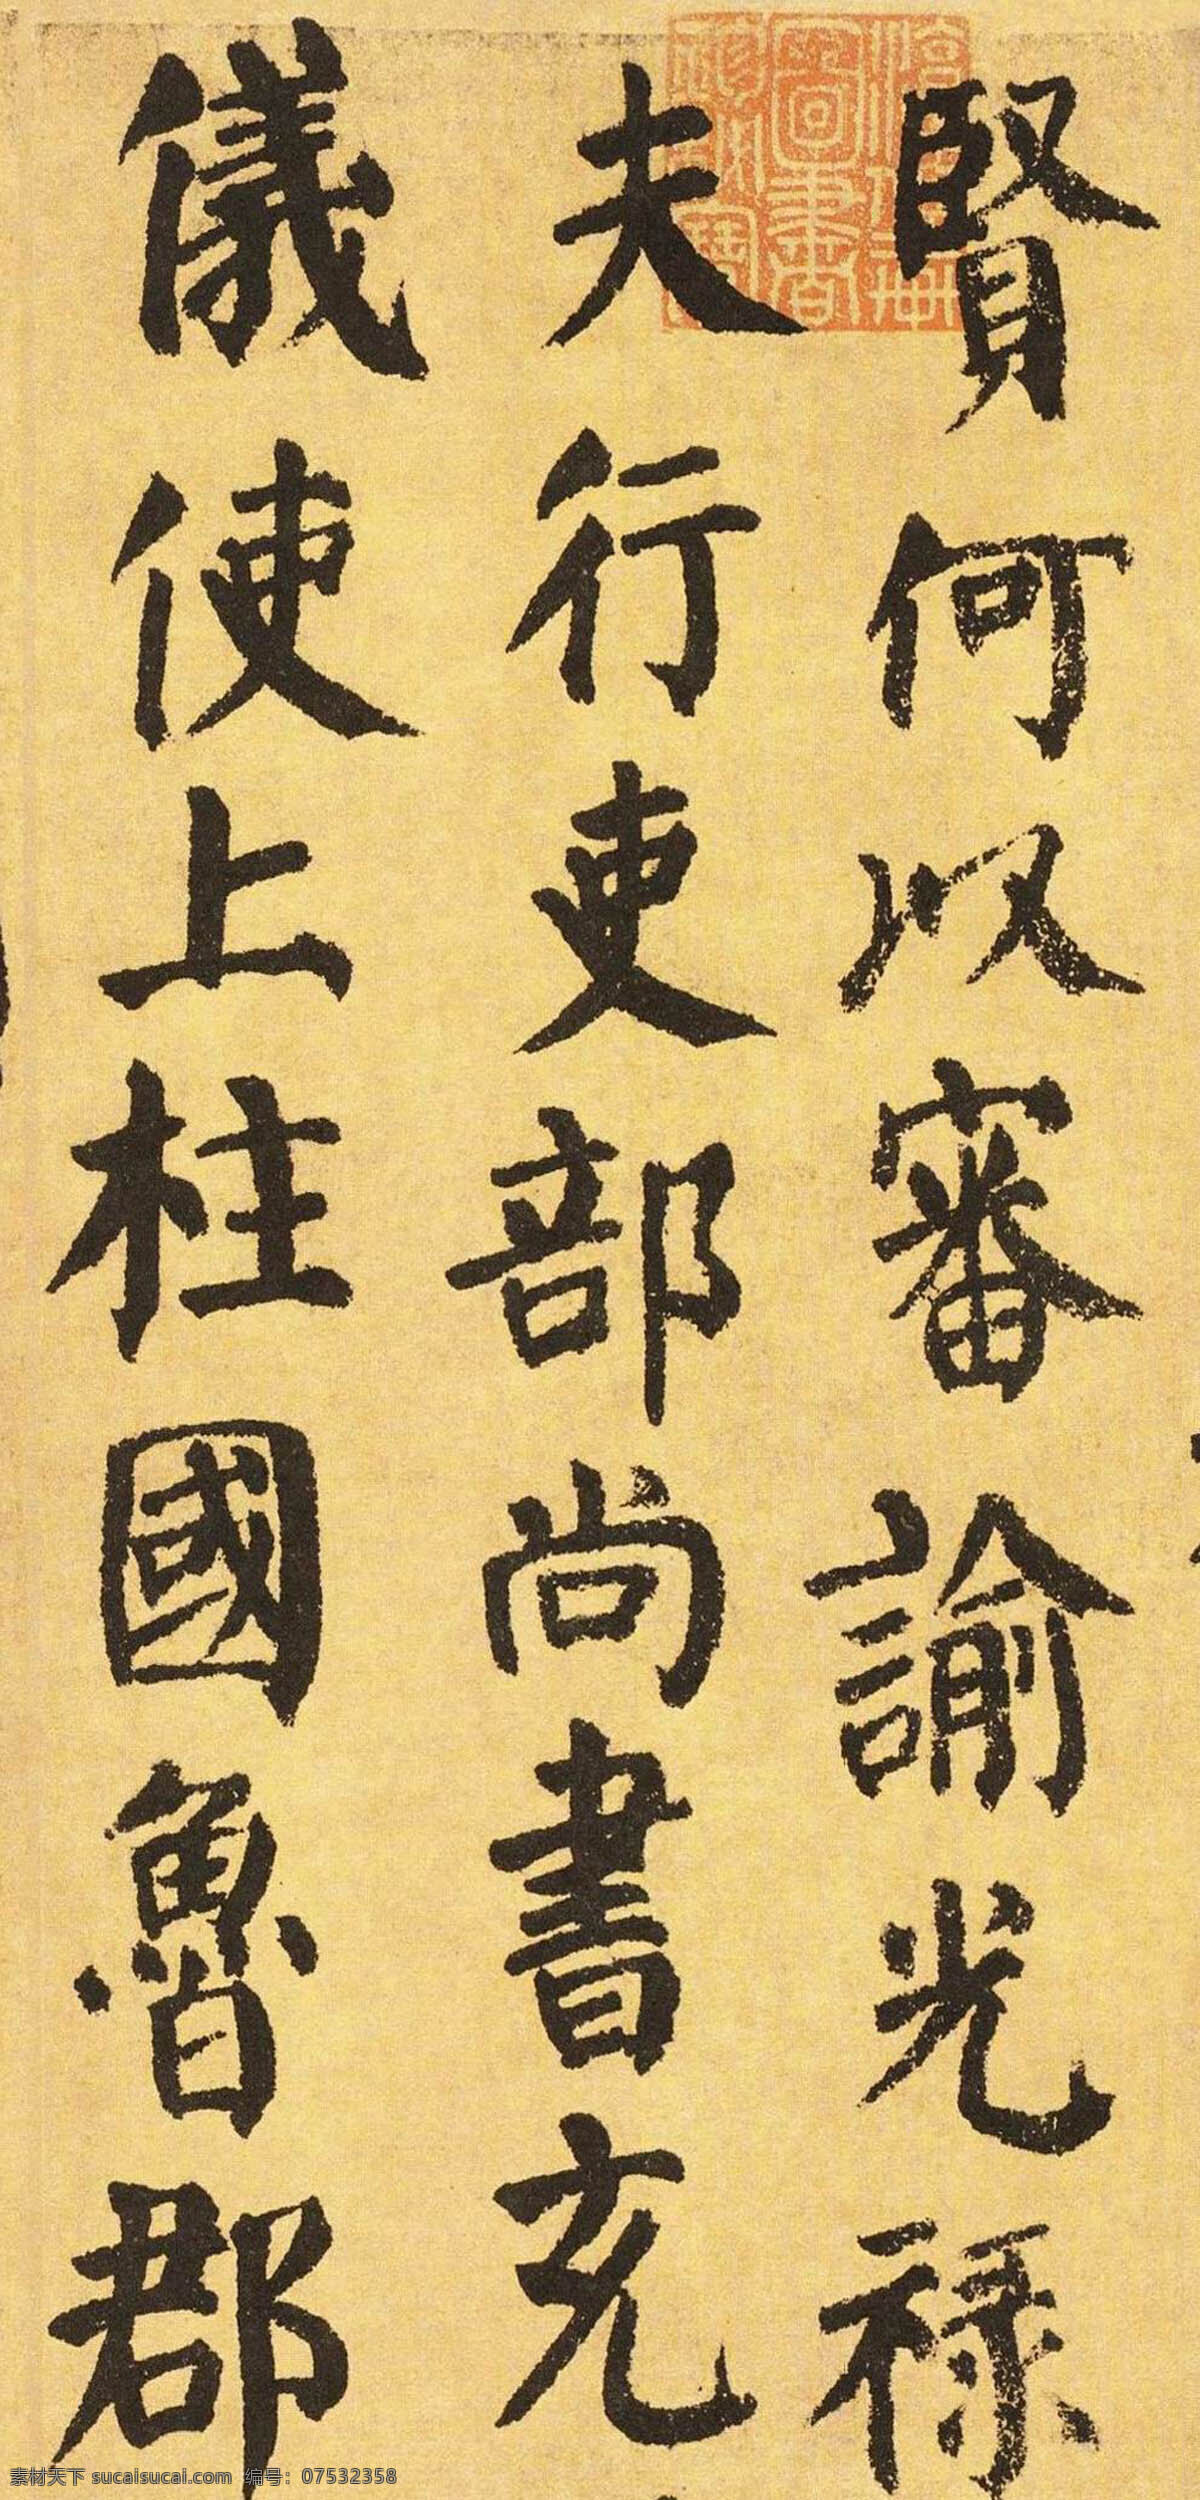 賢何以審諭光祿
夫行吏部尚書充
儀使上柱國魯郡
素材天下 sucaisucai.com 编号：07532358